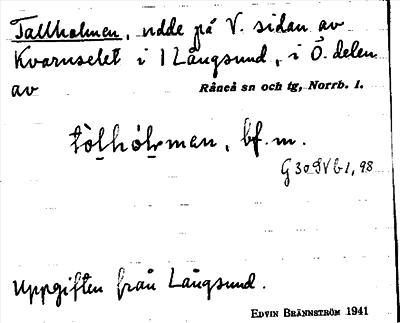 Tallholmen, udde på V. sidan av
Kvarnselet i Långsund, i Ö. delen
av Råneå sn och tg, Norrb. l.
tòl̠hól̠man, bf. m.
Uppgiften från Långsund.
EDVIN BRÄNNSTRÖM 1941